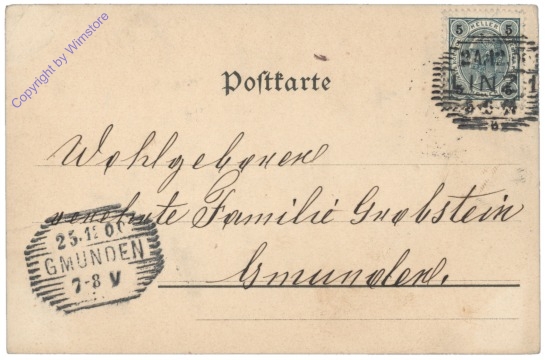 Copyright by Wimstore
5 HELLER 5
24.12
LINZ 1
Postkarte
Wohlgeboren
verehrte Familie Grabstein
Gmunden.
25.12.00
GMUNDEN
7-8 V